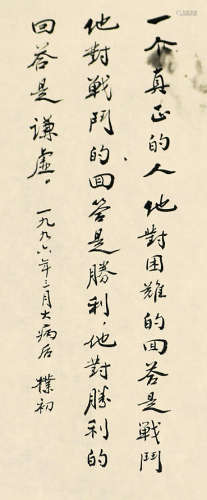 一个真正的人他對困難的回答是戰鬥
他對戰鬥的回答是勝利，他對勝利的
回答是謙虛。
一九九六年三月大病后 樸初